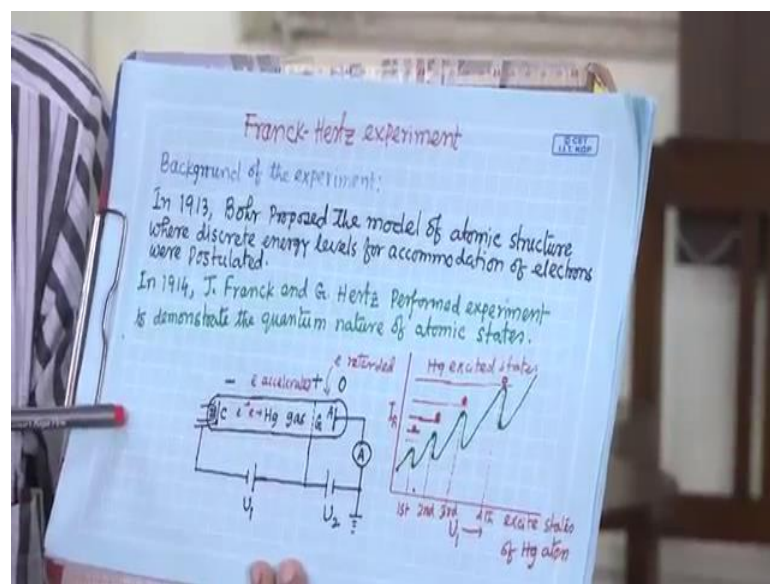 Franck-Hertz experiment
© CET
I.I.T. KGP
Background of the experiment:
In 1913, Bohr Proposed the model of atomic structure
where discrete energy levels for accommodation of electrons
were postulated.
In 1914, J. Franck and G. Hertz Performed experiment
to demonstrate the quantum nature of atomic states.
e retarded
- e accelerated + 0
C e e → Hg gas G A
A
U1
U2
Hg excited states
IA
1st 2nd 3rd 4th excite states
U1 →
of Hg atom